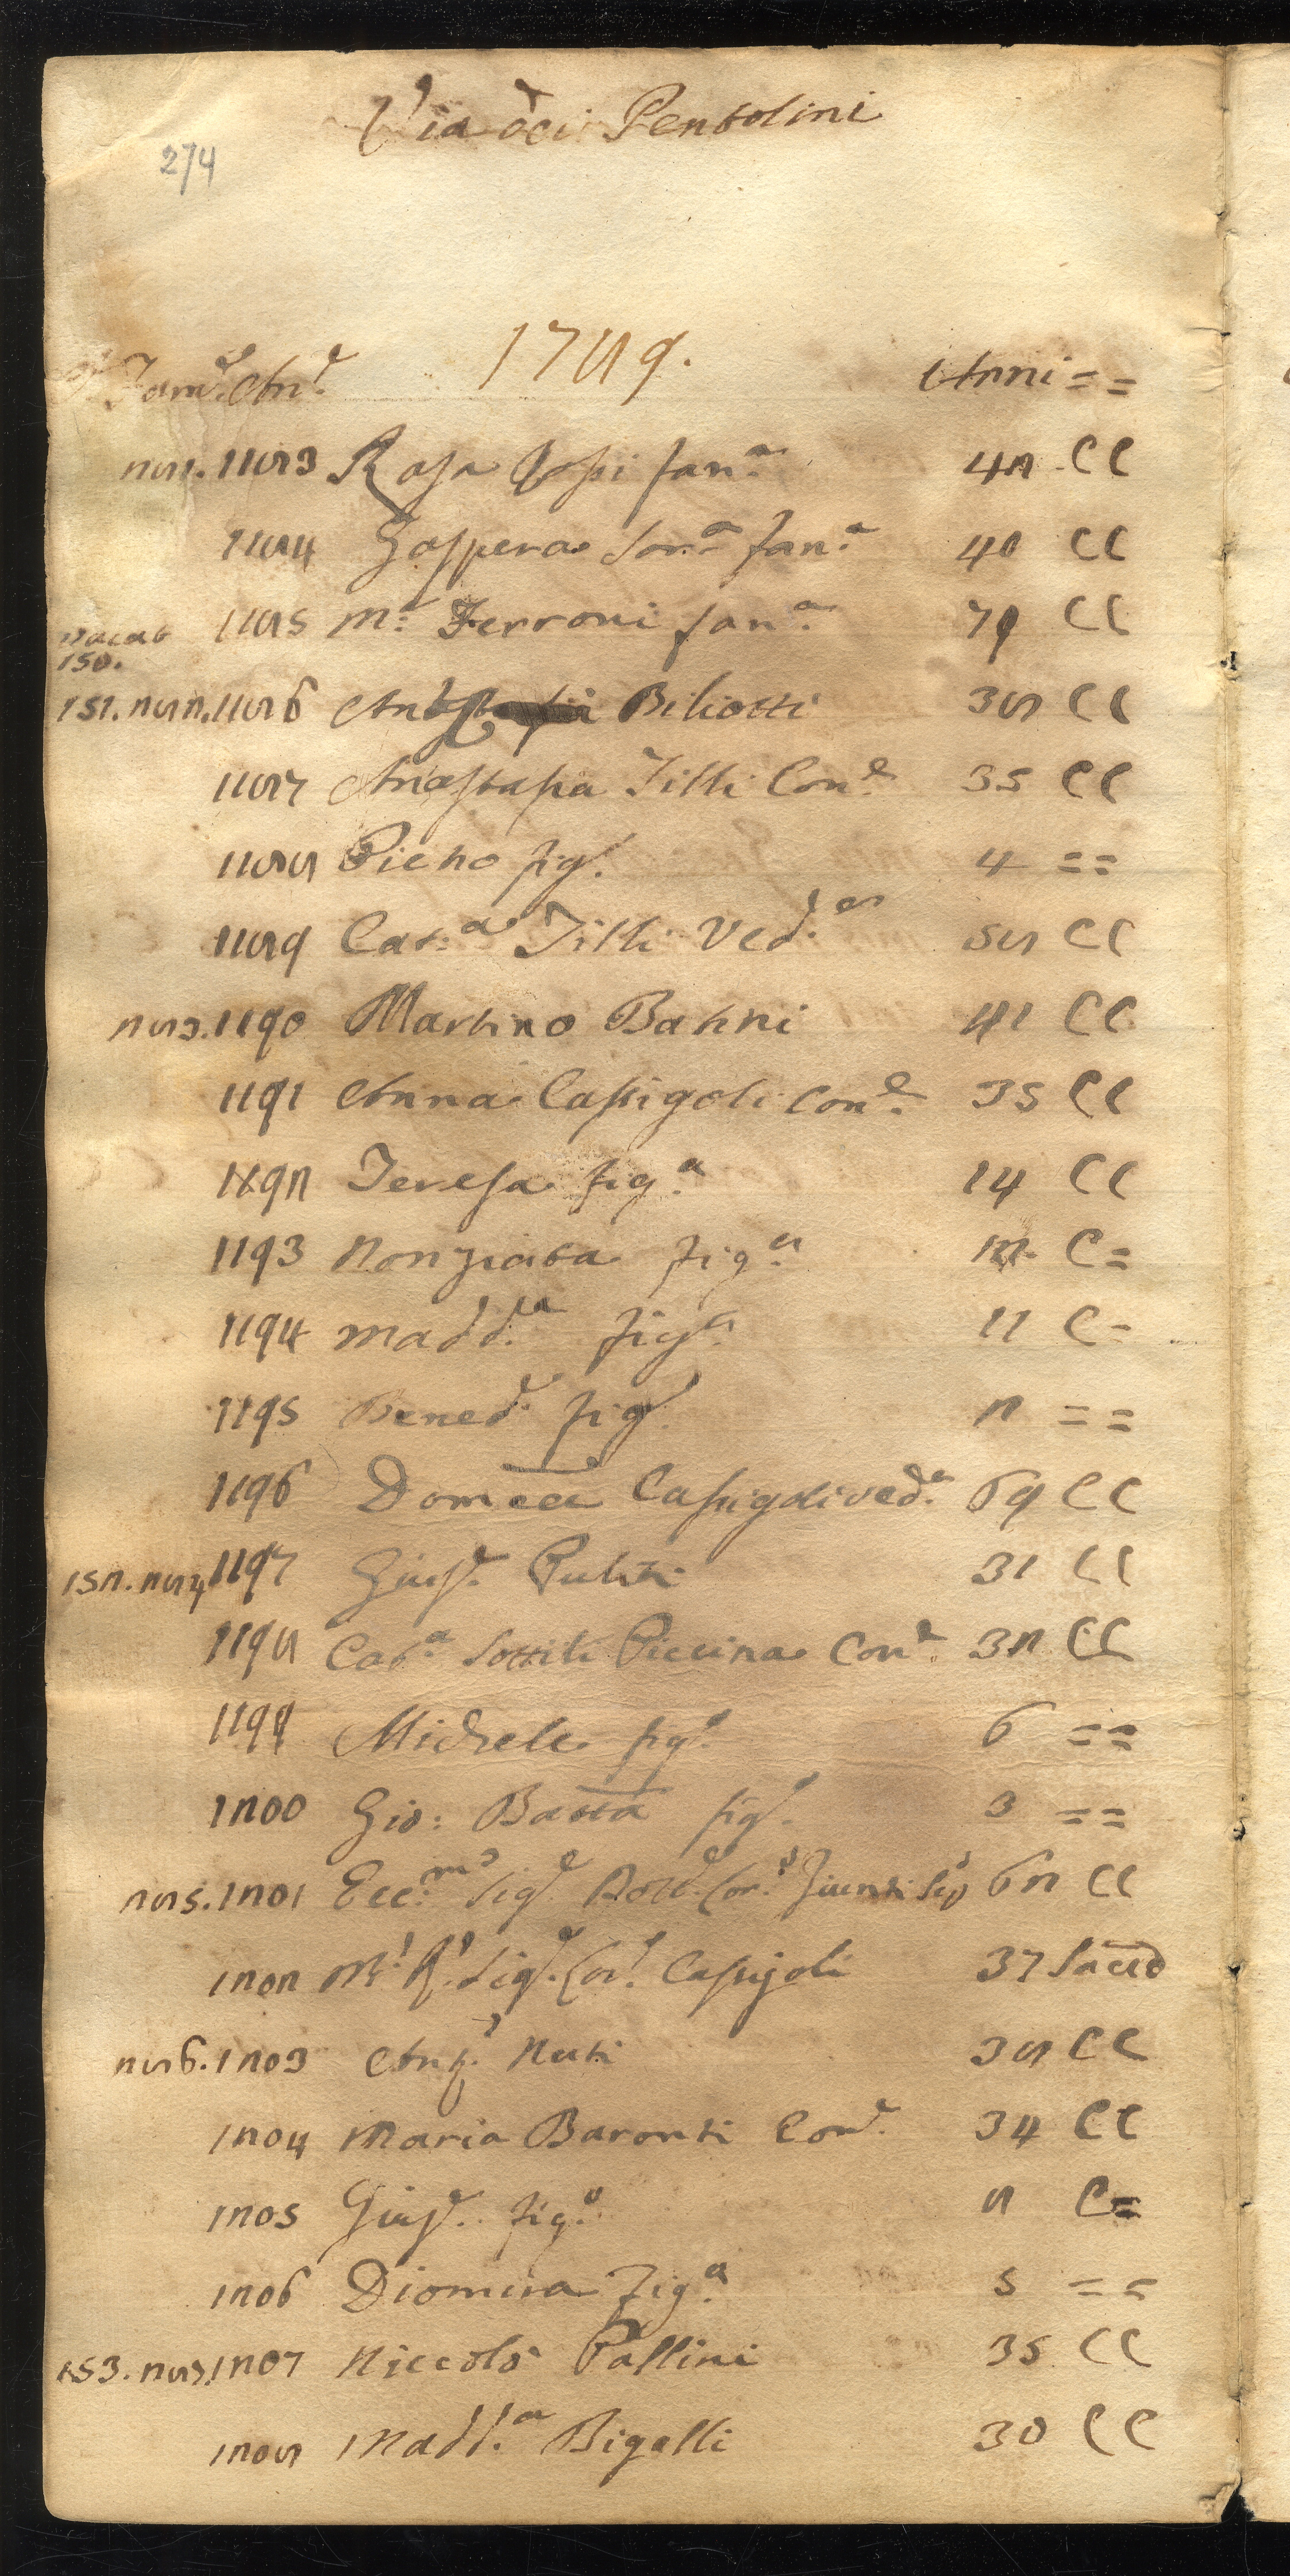 Via dei Pentolini
274
1789.
Fam.e An.e Anni = =
281. 1183 Rosa Rossi fan.a 42 CC
1184 Gaspera Sor.a fan.a 40 CC
1185 M.a Ferroni fan.a 79 CC
vacat
150.
151. 282. 1186 Biliotti 38 CC
1187 Anastasia Tilli Con.e 35 CC
1188 Pietro fig.o 4 = =
1189 Cat.a Tilli Ved.a 58 CC
283. 1190 Martino Bahni 41 CC
1191 Anna Cassigoli Con.e 35 CC
1192 Teresa fig.a 14 CC
1193 Nonziata fig.a 12 C =
1194 Madd.a fig.a 11 C =
1195 Bened.o fig.o 2 = =
1196 Domca Cassigoli ved.a 69 CC
152. 284 1197 Gius.e Puliti 31 CC
1198 Cat.a Sottili Piccina Con.e 32 CC
1199 Michele fig.o 6 = =
1200 Gio: Batta fig.o 3 = =
285. 1201 Ecc.mo Sig.e Dott.e Lor.o Giunti 62 CC
1202 M.o R.o Sig.e Lor.o Cassigoli 37 Sacerd
286. 1203 Ant.o Nuti 38 CC
1204 Maria Baronti Con.e 34 CC
1205 Gius.e fig.o 8 C =
1206 Diomira Fig.a 5 = =
153. 287. 1207 Niccolò Pallini 35 CC
1208 Madd.a Bigalli 30 CC